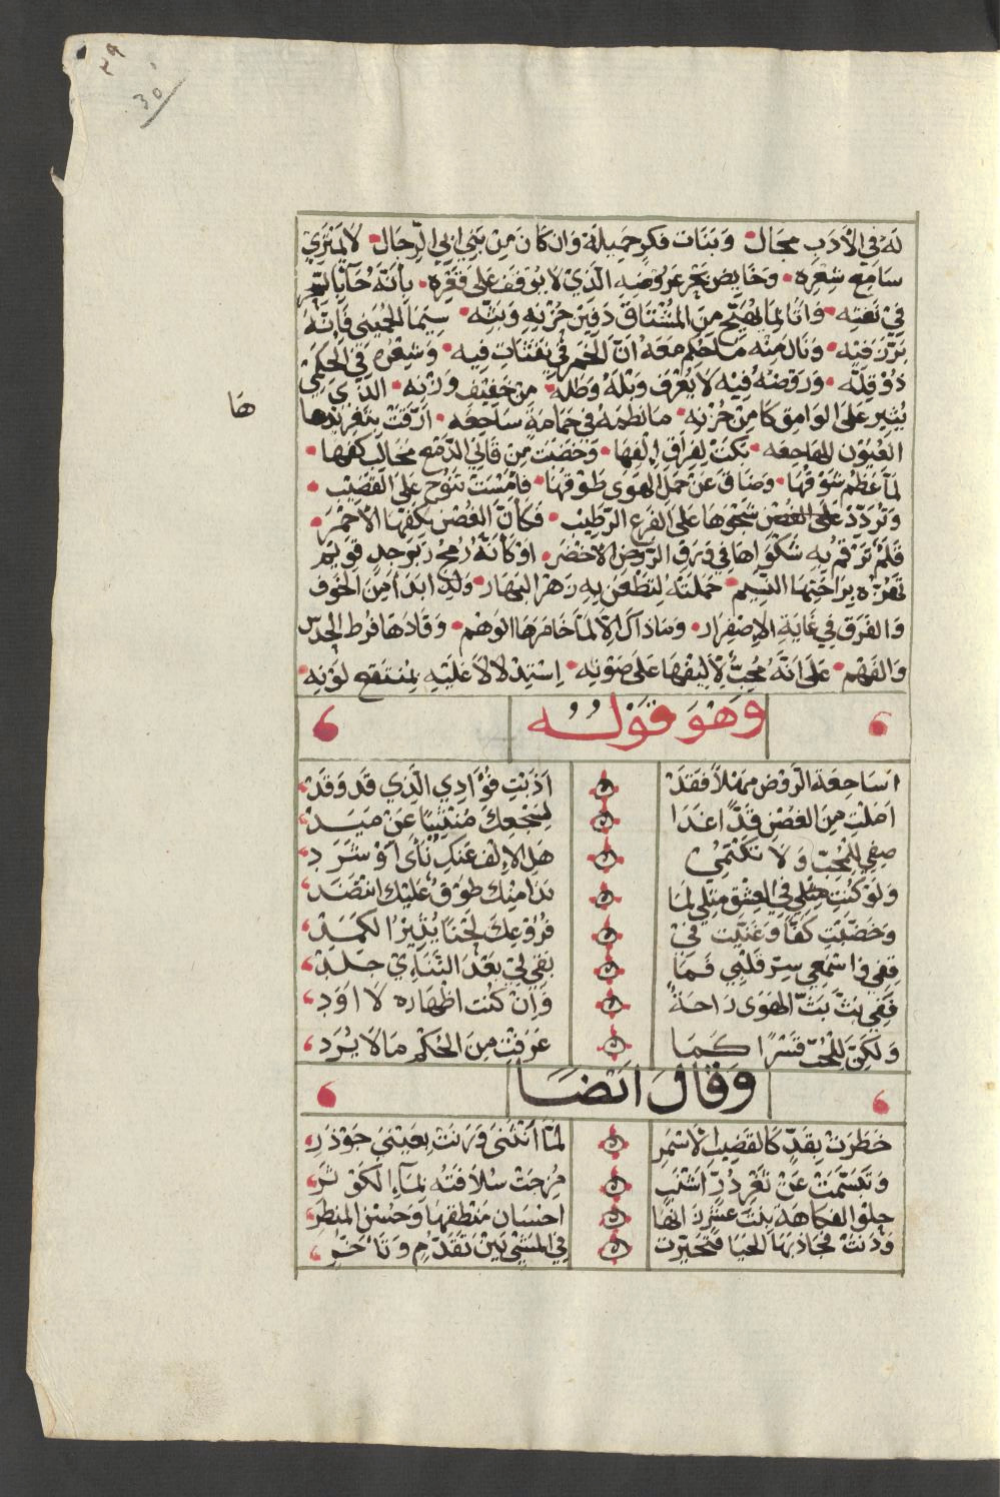 ٢٩
30
له في الأدب مجال وبنات فكر جميلة وان كان من بني ابي الرجال لا يمتري
سامع شعره وخايض بحر عروضه الذي لا يوقف على قعره بأنه حاتم
في نعته واقا لما يهيج من المشتاق دفين حزنه وبثه سيما الحميني فإنه
برز فيه ونال منه ما حكم معه ان الخمر في نفثات فيه وشعره في الحكمي
ذو قله وروضه فيه لا يعرف وبله وطله من خفيف وزنه الذي
يثير على الوامق كامن حزنه ما نظمه في حمامة ساجعه ارقت بتغريدها
ها
العيون الهاجعه بكت لفراق إلفها وخضبت من قاني الدمع مخالب كفها
لما عظم شوقها وضاق عن حمل الهوى طوقها فامست تنوح على القضيب
وتردد على الغصن شجوها على الفرع الرطيب فكأن الغصن بكفها الأحمر
قلم ترقم به شكواها في ورق الروض الاخضر او كأنه رمح زبرجد قويم
تهزه براحتها النسيم حملته لتطعن به زهر البهار ولذا ابدا من الخوف
والفرق في غاية الإصفرار وما ذاك إلا لما خامرها الوهم وقادها فرط الحدس
والفهم على انه محب لأليفها على صونه استدلالا عليه بمنتقع لونه
وهو قوله
اساجعة الروض مهلا فقد اذبت فؤادي الذي قد وقد
املت من الغصن قدا غدا لسجعك منثنيا عن ميد
صفي للمحب ولا تكتمي هل الإلف عنك نأى او شرد
ولو كنت مثلي في العشق مثلي لما بدا منك طوق عليك انتضد
وخضبت كفا وغنيت في فروعك لحنا يثير الكمد
قفي واسمعي سر قلبي فما بقي لي بعد التنائي جلد
ففي بث بث الهوى راحة وإن كنت اظهاره لا اود
ولكن للحب قسرا كما عرفت من الحكم مالا يرد
وقال ايضا
خطرت بقد كالقضيب الاسمر لما انثنى ورنت بعيني جوذر
وتبسمت عن ثغر در اشنب مزجت سلافته بماء الكوثر
حلو الفكاهة بنت عشر زانها احسان منطقها وحسن المنظر
ودنت فجاذبها الحيا فتحيرت في المشي بين تقدم وتأخر